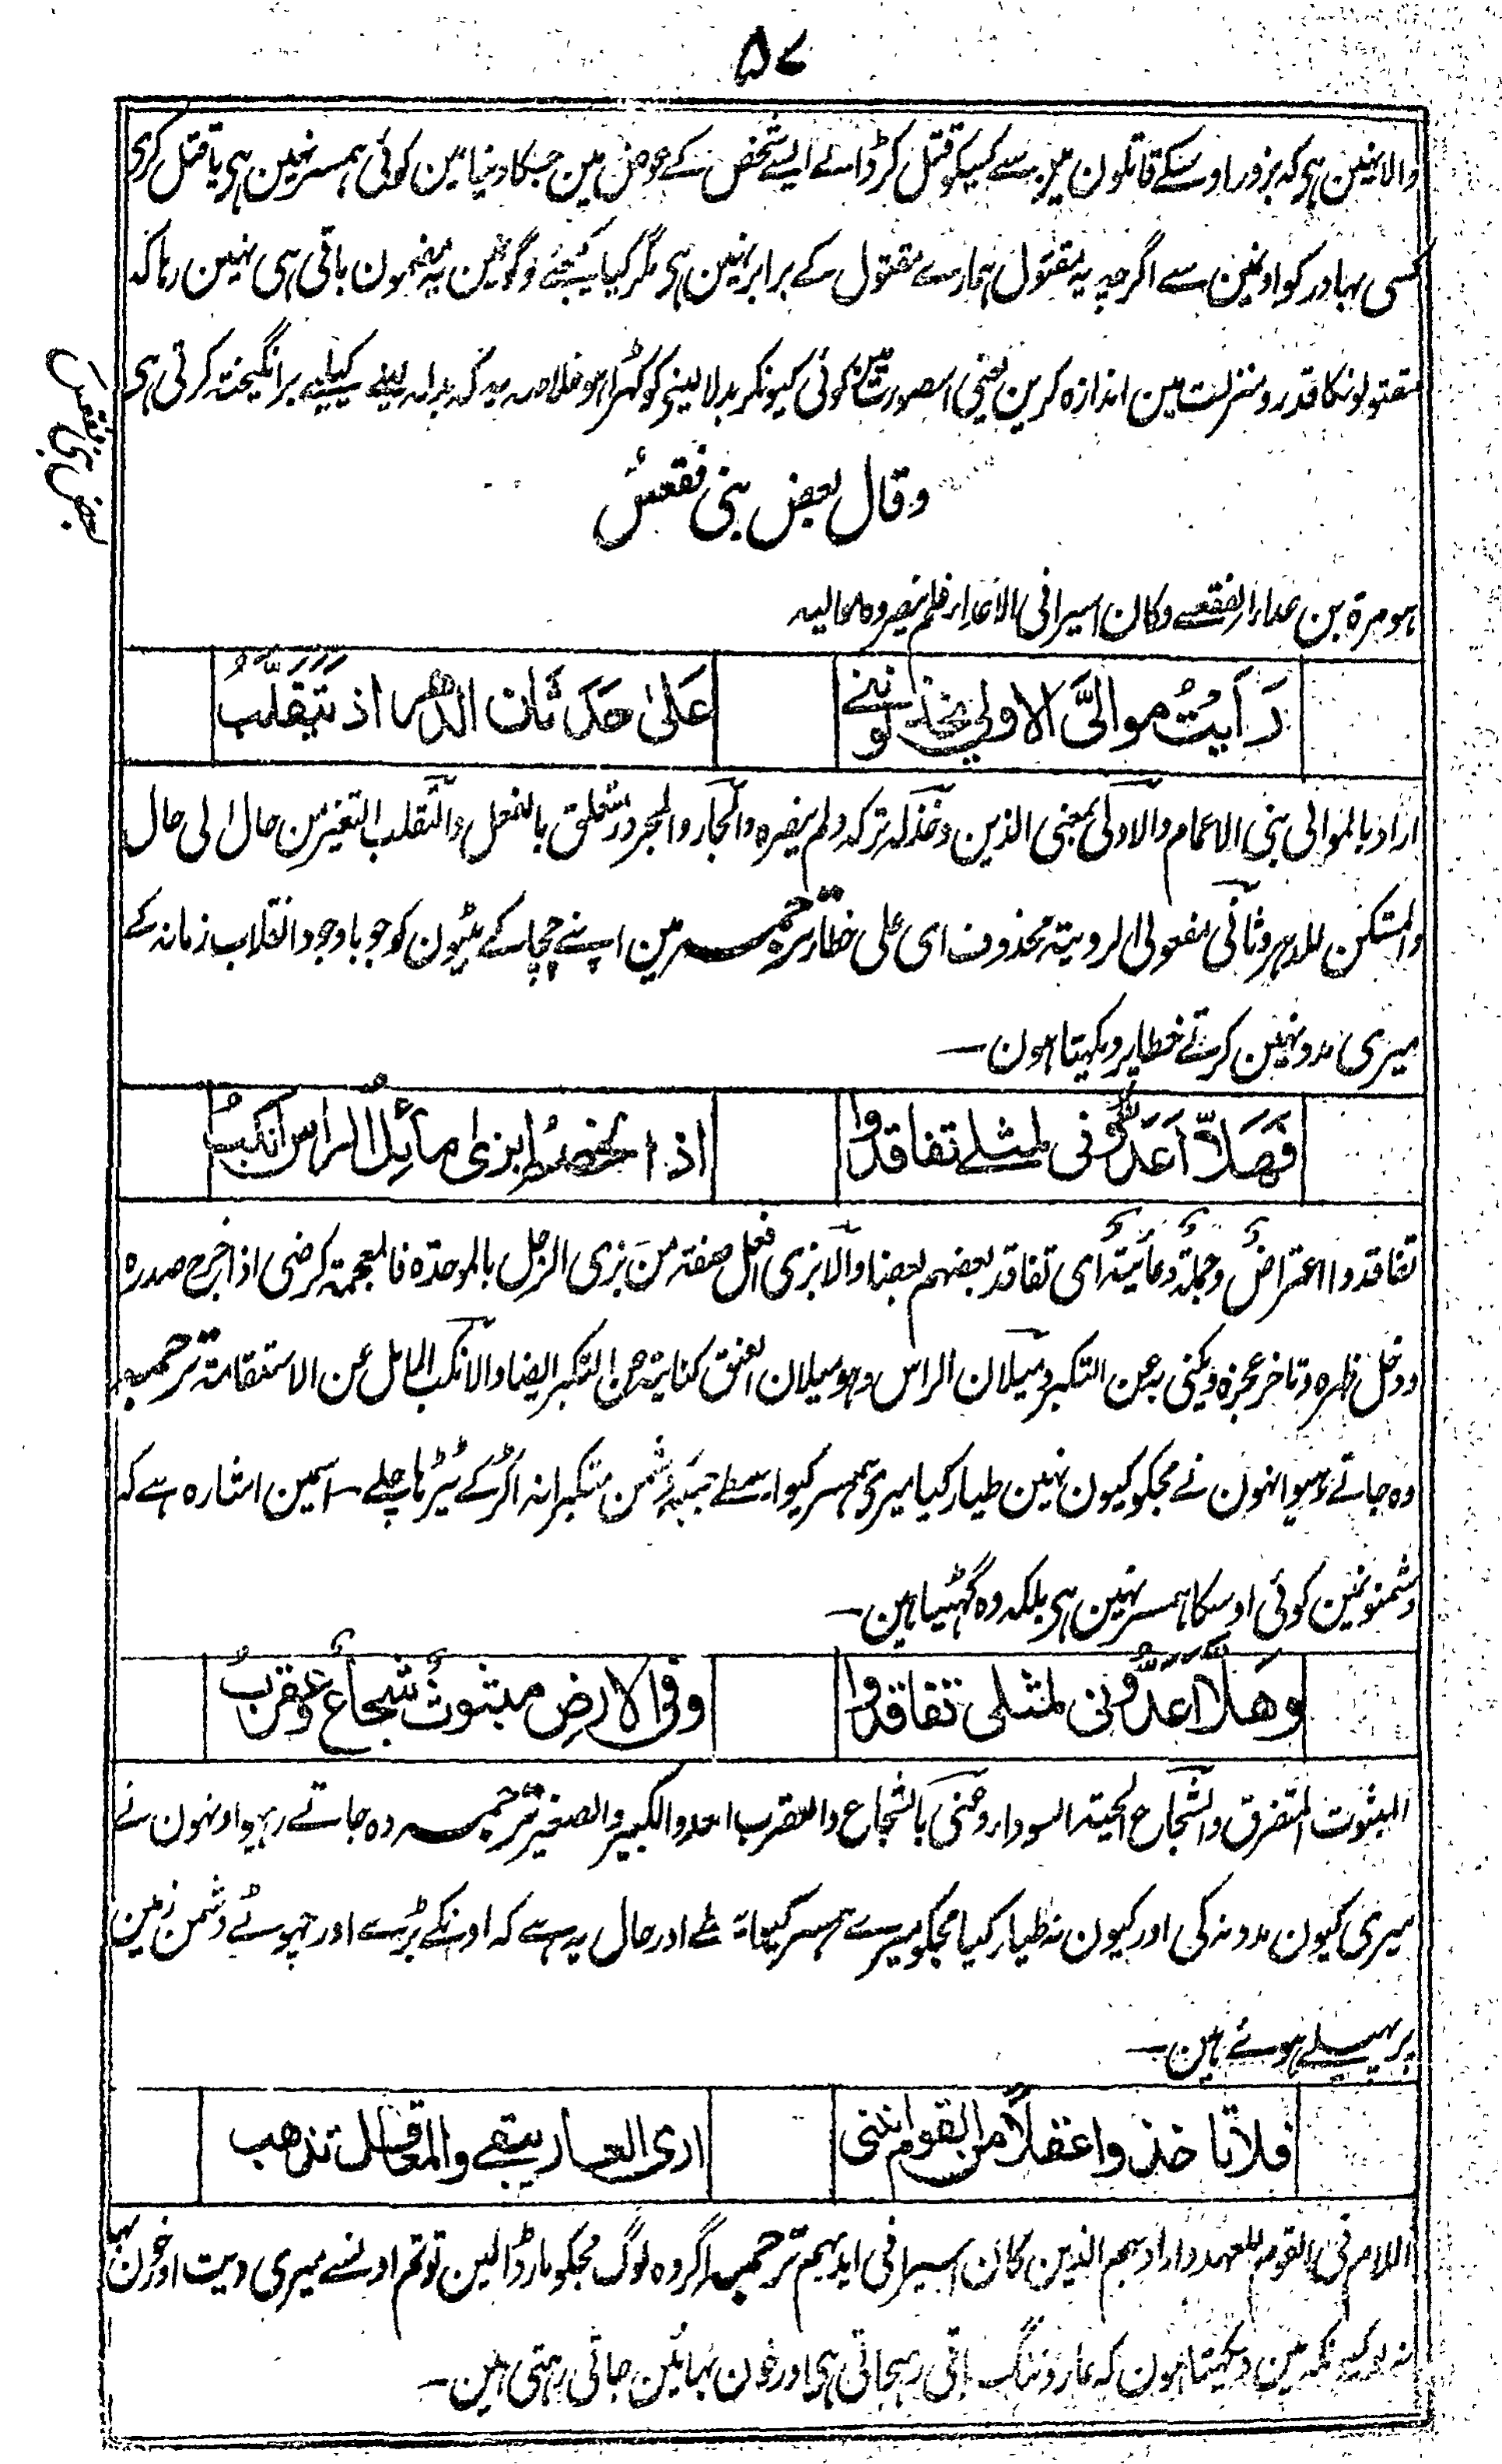 ۵۷
والا نہین ہی کہ بزور اوسکے قاتلون مین سے کسیکو قتل کر ڈالے ایسے شخص کے عوض مین جسکا دنیا مین کوئی ہمسر نہین ہی یا قتل کری
کسی بہادر کو اونمین سے اگرچہ یہ مقتول ہمارے مقتول کے برابر نہین ہی مگر کیا کیجئے لوگونمین یہ مضمون باقی ہی نہین رہا کہ
مقتولونکا قدر و منزلت مین اندازہ کرین یعنی اسصورت مین کوئی کیونکر بدلا لینی کو کھڑا ہو خلاصہ یہ کہ بدلہ لینے کیلیے برانگیختہ کرتی ہی
بعض بنی فقعس
وقال بعض بنی فقعس
ہو مرۃ بن عداء الفقعسے وکان اسیرا فی الاعداء فلم ینصروہ موالیہ
رَأَيْتُ مواليَّ الاولي يخذلونني
عَلیٰ حَدَثانِ الدهر اذ يَتَقَلَّبُ
اراد بالموالی بنی الاعمام والاولیٰ بمعنی الذین وخذلہ ترکہ ولم ینصرہ والجار والمجرور متعلق بالفعل والتقلب التغیر من حال الی حال
والمستکن للدہر وثانی مفعولی الرویتہ محذوف ای علی خطاء ترجمہ مین اپنے چچا کے بیٹون کو جو باوجود انقلاب زمانہ کے
میری مدد نہین کرتے خطا پر دیکہتا ہون۔
فَهَلَّا اَعَدُّوني لمثلي تفاقدوا
اذا الخصمُ ابزى مائلُ الراس انكبُ
تفاقدوا اعتراضٌ وجملۃٌ دعائیۃٌ ای تفاقد بعضہم بعضا والابزی افعل صفتہ من بَزی الرجل بالموحدۃ فالمعجمۃ کرضی اذا خرج صدرہ
ودخل ظہرہ وتاخر عجزہ ویکنی بہ عن التکبر ومیلان الراس وہو میلان العنق کنایتہ عن التکبر ایضا والانکب المائل عن الاستقامۃ ترجمہ
وہ جاتے رہیو انہون نے مجکو کیون نہین طیار کیا میری ہمسر کیواسطے جبکہ دشمن متکبرانہ اکڑ کے ٹیڑھا چلے۔ اسمین اشارہ ہے کہ
دشمنونمین کوئی اوسکا ہمسر نہین ہی بلکہ وہ گھٹیا ہین۔
وهَلَّا اعدُّوني لمثلي تفاقدوا
وفي الارض مبثوثٌ شجاعٌ وعقربُ
المبثوث المتفرق والشجاع الحیتہ السوداء وکنی بالشجاع والعقرب العدو الکبیر والصغیر ترجمہ وہ جاتے رہیو اونہون نے
میری کیون مدد نہ کی اور کیون نہ طیار کیا مجکو میرے ہمسر کیواسطے اور حال یہ ہے کہ اونکے بڑے اور چہوٹے دشمن زمین
پر پہیلے ہوئے ہین۔
فلا تاخذوا عقلاً من القوم انني
ارى العار يبقى والمعاقل تذهب
اللام فی القوم للعہد واراد بہم الذین کان اسیرا فی ایدیہم ترجمہ اگر وہ لوگ مجکو مار ڈالین تو تم اونسے میری دیت اور خون بہا
نہ لو کیونکہ مین دیکہتا ہون کہ عار و ننگ باقی رہجاتی ہی اور خون بہائین جاتی رہتی ہین۔